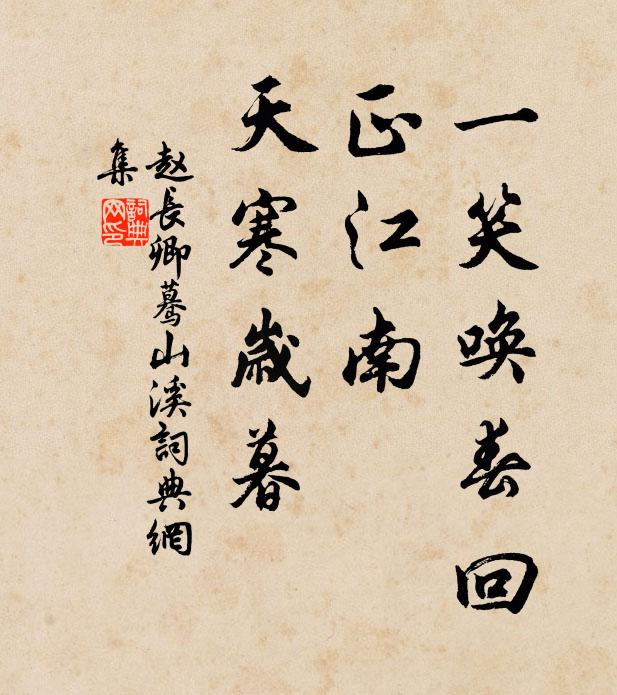 一笑唤春回
正江南
天寒歲暮
赵長卿驀山溪詞典網
集
詞典
网印